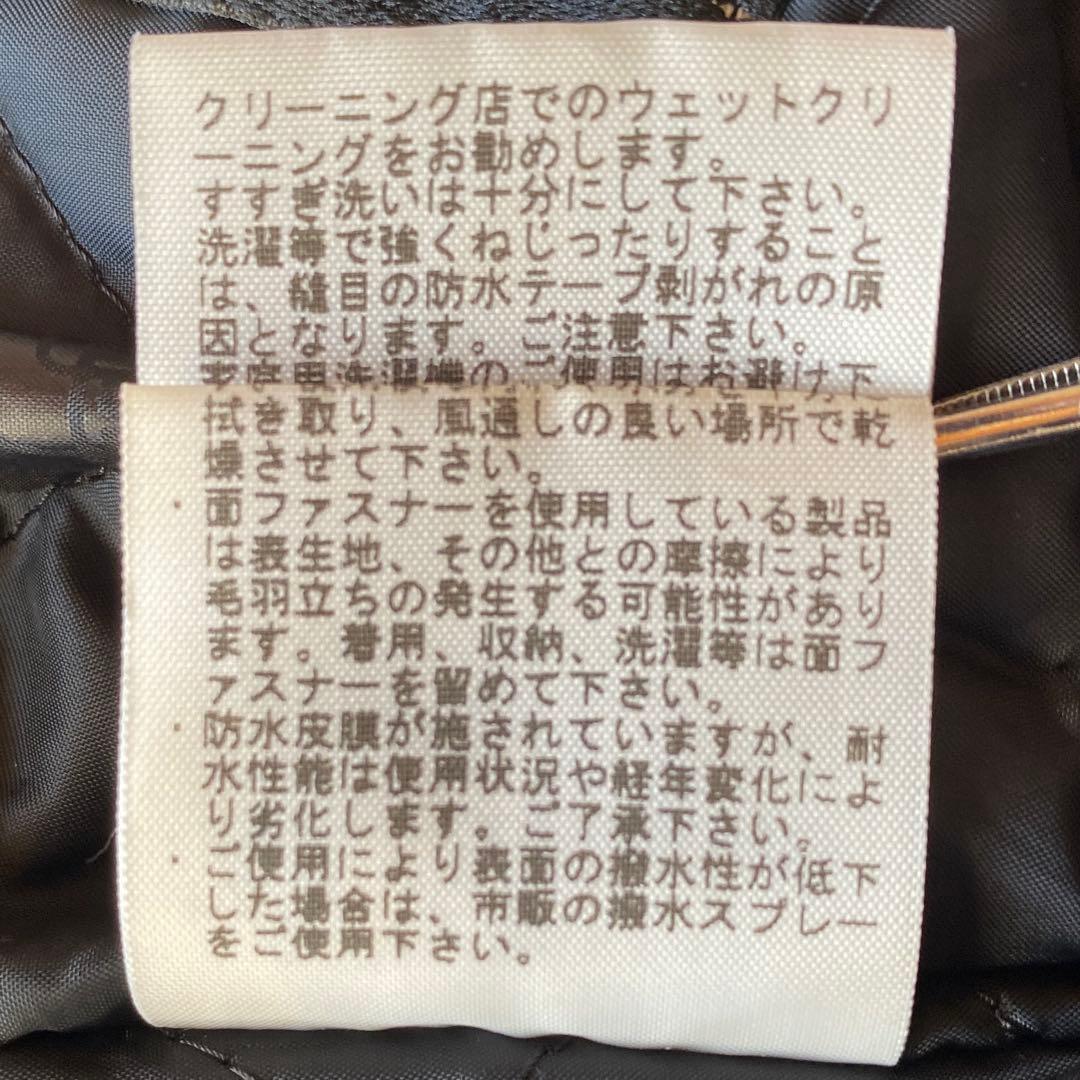 クリーニング店でのウェットクリ
ーニングをお勧めします。
すすぎ洗いは十分にして下さい。
洗濯等で強くねじったりすること
は、縫目の防水テープ剥がれの原
因となります。ご注意下さい。
家庭用洗濯機のご使用はお避け下
拭き取り、風通しの良い場所で乾
燥させて下さい。
・面ファスナーを使用している製品
は表生地、その他との摩擦により
毛羽立ちの発生する可能性があり
ます。着用、収納、洗濯等は面フ
ァスナーを留めて下さい。
・防水皮膜が施されていますが、耐
水性能は使用状況や経年変化によ
り劣化します。ご了承下さい。
・ご使用により、表面の撥水性が低下
した場合は、市販の撥水スプレー
をご使用下さい。